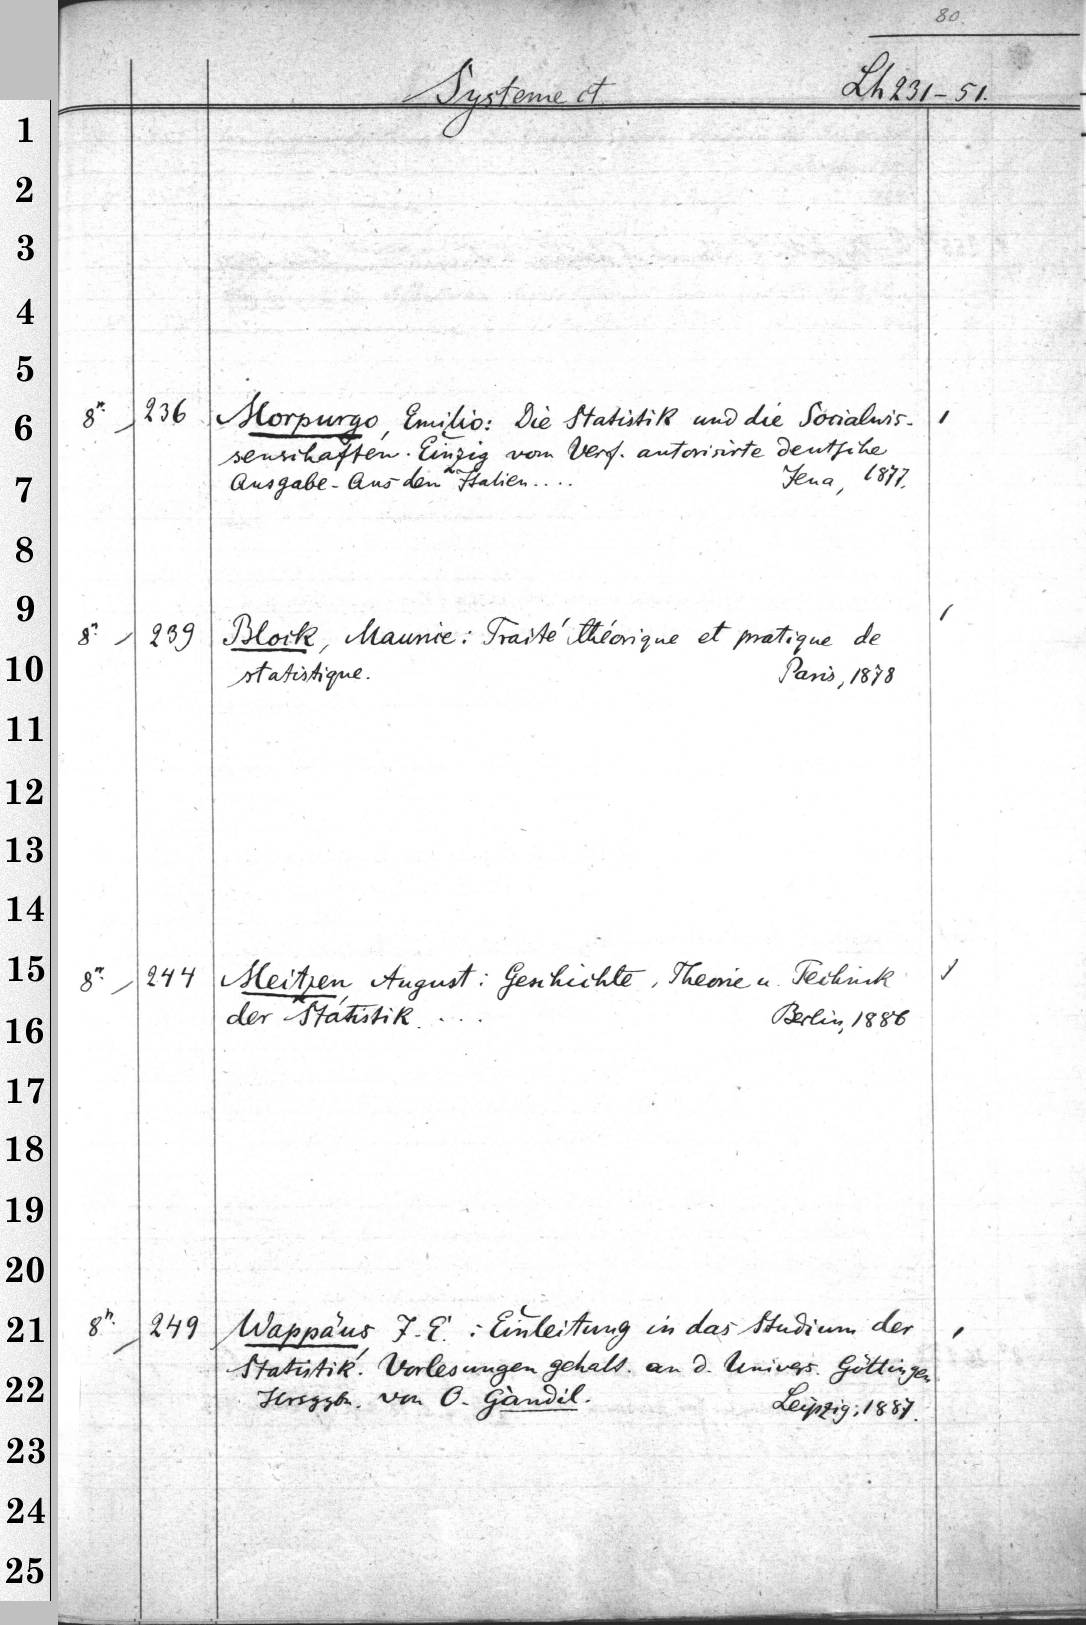 80.
Systeme ct
Lh 231-51.
8º. 236 Morpurgo, Emilio: Die Statistik und die Socialwis-
senschaften. Einzig vom Verf. autorisirte Deutsche
Ausgabe - Aus dem Italien....
Jena, 1877.
8º. 239 Block, Maurice: Traité théorique et pratique de
statistique.
Paris, 1878
8º. 244 Meitzen, August: Geschichte, Theorie u. Technik
der Statistik. ...
Berlin, 1886
8º. 249 Wappäus, J. E. : Einleitung in das Studium der
Statistik. Vorlesungen gehalt. an d. Univers. Göttingen
Hrsggbn. von O. Gandil.
Leipzig, 1887.
1
2
3
4
5
6
7
8
9
10
11
12
13
14
15
16
17
18
19
20
21
22
23
24
25